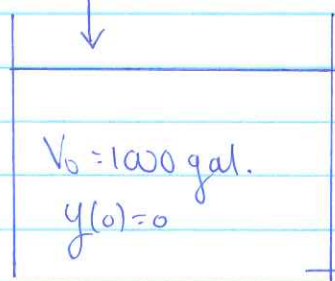 V₀ = 1000 gal.
y(0) = 0